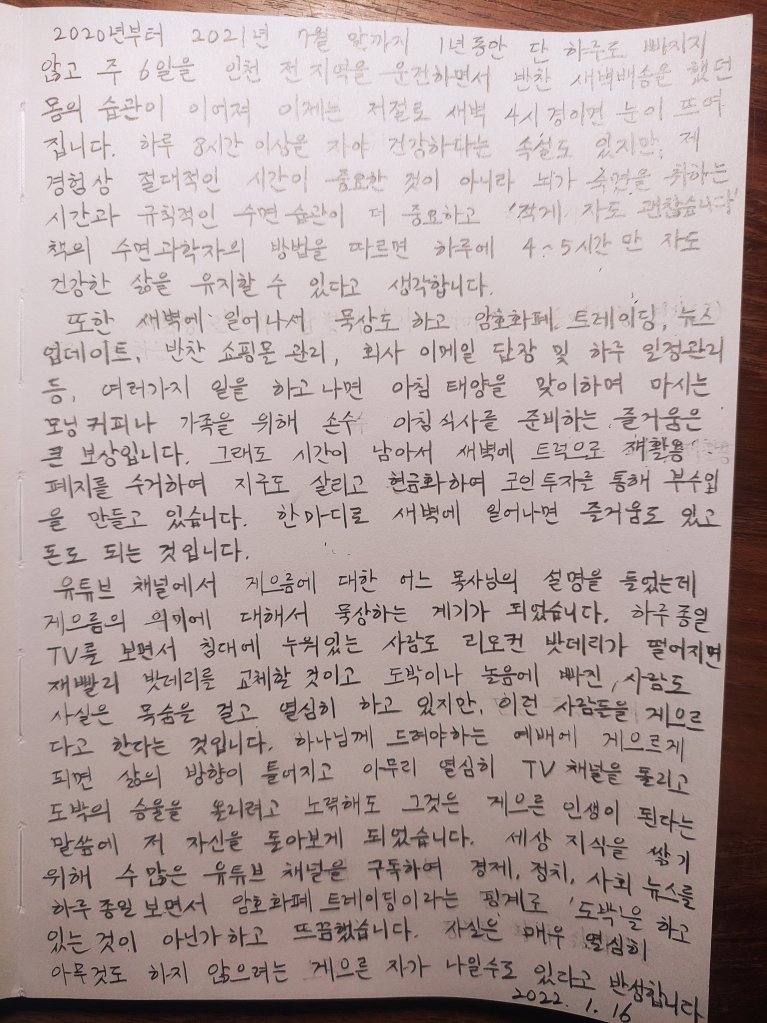 2020년부터 2021년 7월 말까지 1년동안 단 하루도 빠지지
않고 주 6일을 인천 전 지역을 운전하면서 반찬 새벽배송을 했던
몸의 습관이 이어져 이제는 저절로 새벽 4시경이면 눈이 뜨여
집니다. 하루 8시간 이상을 자야 건강하다는 속설도 있지만, 제
경험상 절대적인 시간이 중요한 것이 아니라 뇌가 숙면을 취하는
시간과 규칙적인 수면 습관이 더 중요하고 '적게 자도 괜찮습니다'
책의 수면과학자의 방법을 따르면 하루에 4~5시간만 자도
건강한 삶을 유지할 수 있다고 생각합니다.
또한 새벽에 일어나서 묵상도 하고 암호화폐 트레이딩, 뉴스
업데이트, 반찬 쇼핑몰 관리, 회사 이메일 답장 및 하루 일정관리
등, 여러가지 일을 하고나면 아침 태양을 맞이하며 마시는
모닝커피나 가족을 위해 손수 아침식사를 준비하는 즐거움은
큰 보상입니다. 그래도 시간이 남아서 새벽에 트럭으로 재활용
폐지를 수거하여 지구도 살리고 현금화하여 코인투자를 통해 부수입
을 만들고 있습니다. 한마디로 새벽에 일어나면 즐거움도 있고
돈도 되는 것입니다.
유튜브 채널에서 게으름에 대한 어느 목사님의 설명을 들었는데
게으름의 의미에 대해서 묵상하는 계기가 되었습니다. 하루종일
TV를 보면서 침대에 누워있는 사람도 리모컨 밧데리가 떨어지면
재빨리 밧데리를 교체할 것이고 도박이나 놀음에 빠진 사람도
사실은 목숨을 걸고 열심히 하고 있지만, 이런 사람들을 게으르
다고 한다는 것입니다. 하나님께 드려야하는 예배에 게으르게
되면 삶의 방향이 틀어지고 아무리 열심히 TV 채널을 돌리고
도박의 승률을 올리려고 노력해도 그것은 게으른 인생이 된다는
말씀에 저 자신을 돌아보게 되었습니다. 세상 지식을 쌓기
위해 수많은 유튜브 채널을 구독하여 경제, 정치, 사회 뉴스를
하루종일 보면서 암호화폐 트레이딩이라는 핑계로 '도박'을 하고
있는 것이 아닌가하고 뜨끔했습니다. 사실은 매우 열심히
아무것도 하지 않으려는 게으른 자가 나일수도 있다고 반성합니다
2022. 1. 16